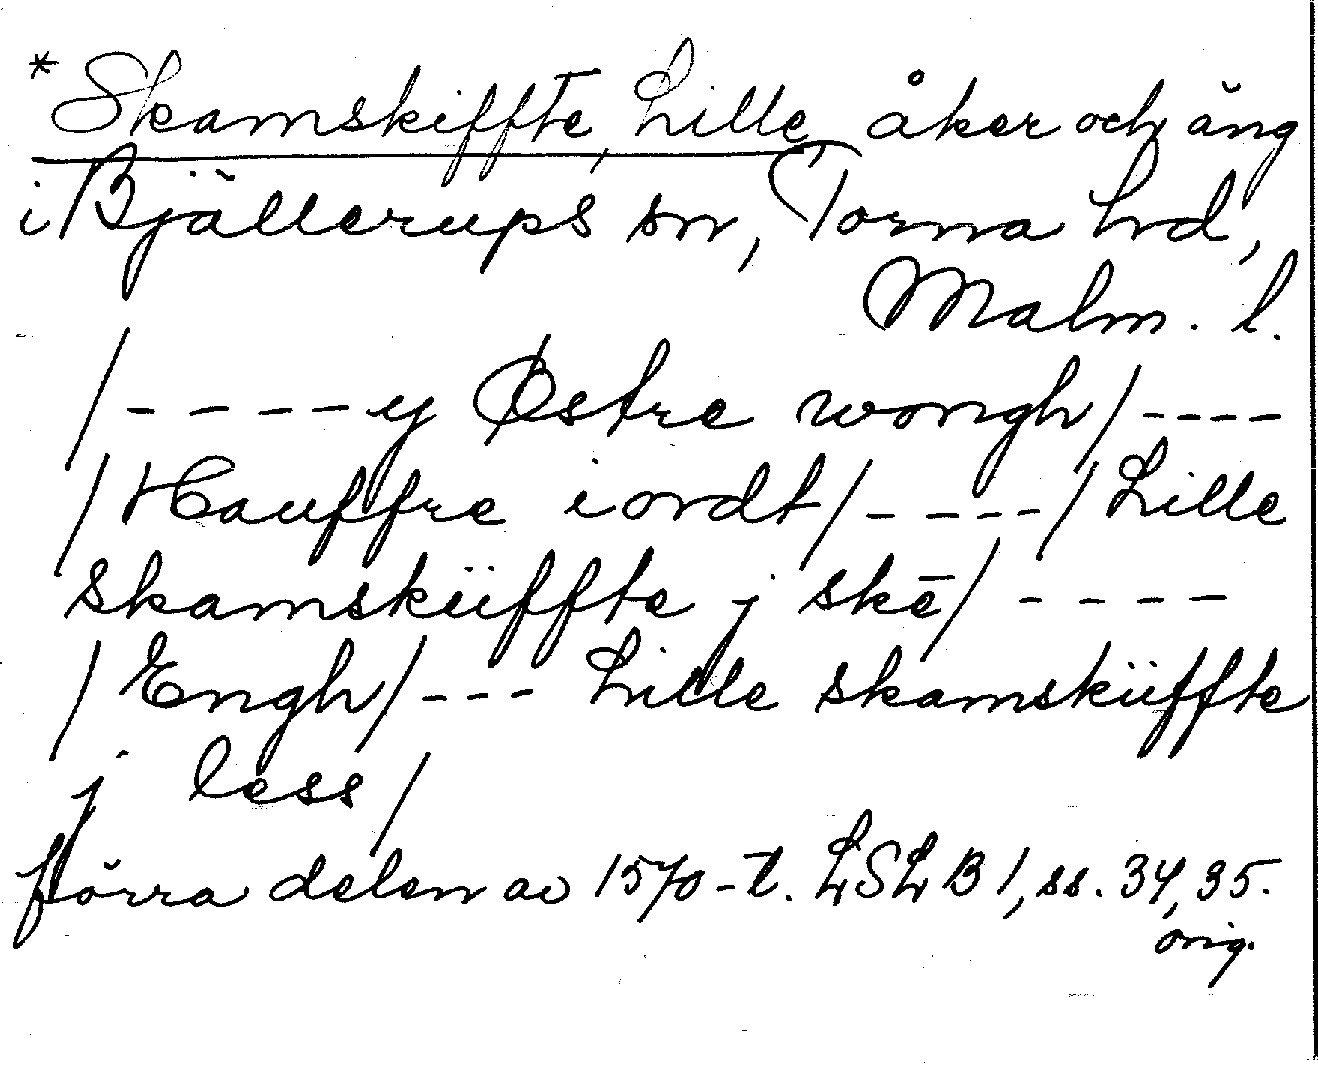 *Skamskiffte, Lille, åker och äng
i Bjällerups sn, Torna hrd,
Malm. l.
/----y Østre wongh/----
/Hauffre iordt/----/Lille
skamsküffte j skē/----
/Engh/--- Lille skamsküffte
j less/
förra delen av 1570-t. LSLB 1, ss. 34, 35.
orig.